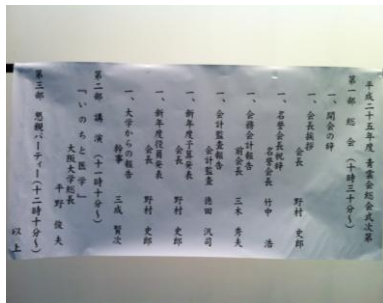 平成二十五年度 青雲会総会式次第
第一部 総会(十時三十分~)
一、開会の辞
一、会長挨拶
会長 野村 史郎
一、名誉会長祝辞
名誉会長 竹中 浩
一、会務会計報告
前会長 三木 秀夫
一、会計監査報告
会計監査 徳田 汎司
一、新年度予算発表
会長 野村 史郎
一、新年度役員発表
会長 野村 史郎
一、大学からの報告
幹事 三成 賢次
第二部 講演(十一時十分~)
『いのちと医学』
大阪大学総長
平野 俊夫
第三部 懇親パーティー(十二時十分~)
以上